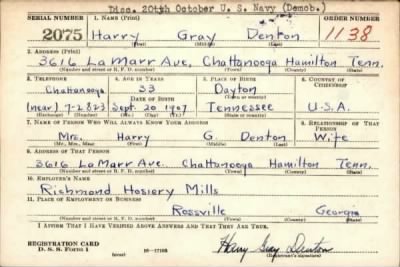 Disc. 20th October U. S. Navy (Demob.)
SERIAL NUMBER 1. NAME (Print) ORDER NUMBER
2075 Harry Gray Denton 1138
(First) (Middle) (Last)
2. ADDRESS (Print)
3616 La Marr Ave, Chattanooga Hamilton Tenn.
(Number and street or R. F. D. number) (Town) (County) (State)
3. TELEPHONE 4. AGE IN YEARS 5. PLACE OF BIRTH 6. COUNTRY OF CITIZENSHIP
Chattanooga 33 Dayton
DATE OF BIRTH (Town or county)
(near) 7-2823 Sept. 20 1907 Tennessee U.S.A.
(Exchange) (Number) (Mo.) (Day) (Yr.) (State or country)
7. NAME OF PERSON WHO WILL ALWAYS KNOW YOUR ADDRESS 8. RELATIONSHIP OF THAT PERSON
Mrs. Harry G. Denton Wife
(Mr., Mrs., Miss) (First) (Middle) (Last)
9. ADDRESS OF THAT PERSON
3616 La Marr Ave. Chattanooga Hamilton Tenn.
(Number and street or R. F. D. number) (Town) (County) (State)
10. EMPLOYER'S NAME
Richmond Hosiery Mills
11. PLACE OF EMPLOYMENT OR BUSINESS
Rossville Georgia
(Number and street or R. F. D. number) (Town) (County) (State)
I AFFIRM THAT I HAVE VERIFIED ABOVE ANSWERS AND THAT THEY ARE TRUE.
REGISTRATION CARD
D. S. S. FORM 1 (over) 16-17105 Harry Gray Denton
(Registrant's signature)